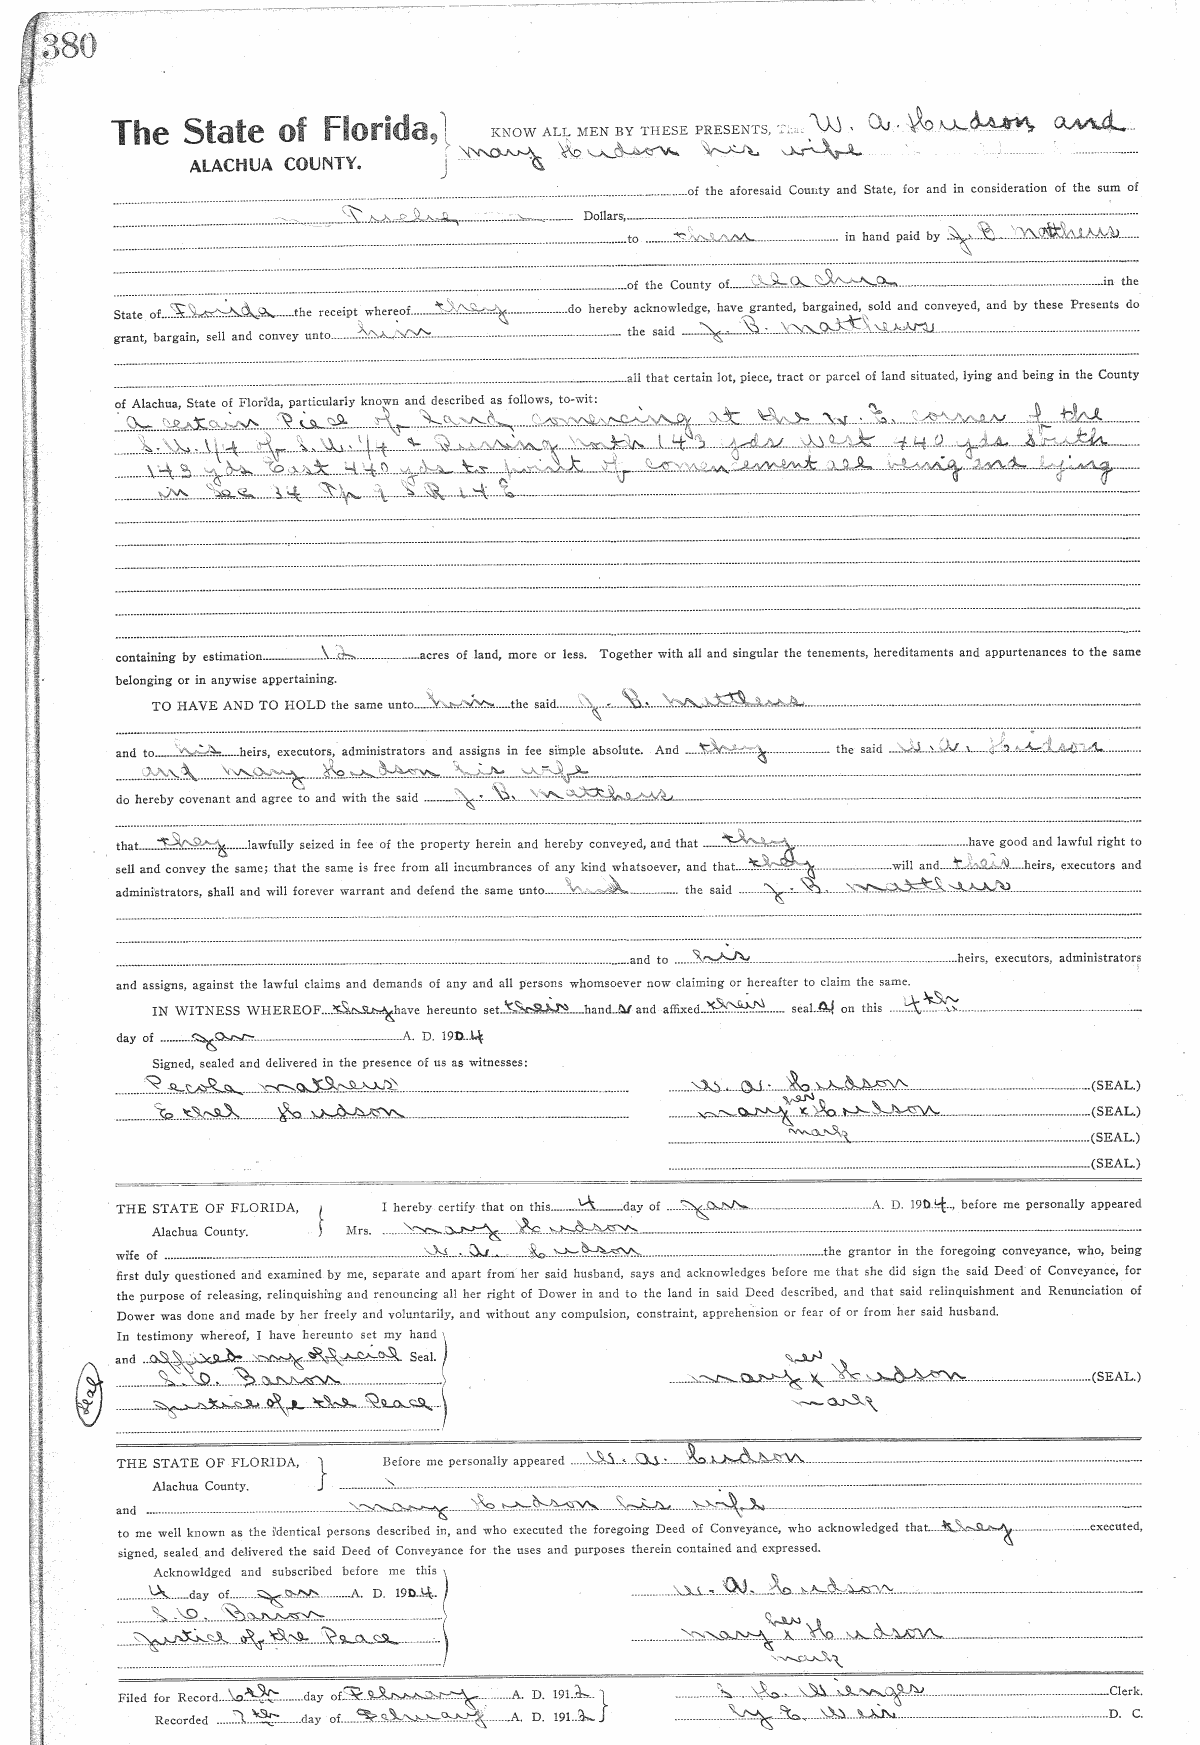 380
The State of Florida,
ALACHUA COUNTY.
KNOW ALL MEN BY THESE PRESENTS, That W. A. Hudson and
Mary Hudson his wife
of the aforesaid County and State, for and in consideration of the sum of
Twelve Dollars,
to them in hand paid by J. B Matthews
of the County of Alachua in the
State of Florida the receipt whereof they do hereby acknowledge, have granted, bargained, sold and conveyed, and by these Presents do
grant, bargain, sell and convey unto him the said J. B. Matthews
all that certain lot, piece, tract or parcel of land situated, lying and being in the County
of Alachua, State of Florida, particularly known and described as follows, to-wit:
A certain Piece of Land comencing at the corner of the
1/4 of 1/4 & Running north 143 yds West 440 yds South
143 yds East 440 yds to point of comencement all being and lying
in Sec 34 Tp 9 S R 17 E
containing by estimation 12 acres of land, more or less. Together with all and singular the tenements, hereditaments and appurtenances to the same
belonging or in anywise appertaining.
TO HAVE AND TO HOLD the same unto him the said J. B. Matthews
and to his heirs, executors, administrators and assigns in fee simple absolute. And they the said W. A. Hudson
and Mary Hudson his wife
do hereby covenant and agree to and with the said J. B. Matthews
that they lawfully seized in fee of the property herein and hereby conveyed, and that they have good and lawful right to
sell and convey the same; that the same is free from all incumbrances of any kind whatsoever, and that they will and their heirs, executors and
administrators, shall and will forever warrant and defend the same unto the said J. B. Matthews
and to his heirs, executors, administrators
and assigns, against the lawful claims and demands of any and all persons whomsoever now claiming or hereafter to claim the same.
IN WITNESS WHEREOF they have hereunto set their hand s and affixed their seal s on this 4th
day of Jan A. D. 1904
Signed, sealed and delivered in the presence of us as witnesses:
Pecola Mathews W. A. Hudson (SEAL.)
her
Ethel Hudson Mary x Hudson (SEAL.)
mark (SEAL.)
(SEAL.)
THE STATE OF FLORIDA, I hereby certify that on this 4 day of Jan A. D. 1904, before me personally appeared
Alachua County. Mrs. Mary Hudson
wife of W. A. Hudson the grantor in the foregoing conveyance, who, being
first duly questioned and examined by me, separate and apart from her said husband, says and acknowledges before me that she did sign the said Deed of Conveyance, for
the purpose of releasing, relinquishing and renouncing all her right of Dower in and to the land in said Deed described, and that said relinquishment and Renunciation of
Dower was done and made by her freely and voluntarily, and without any compulsion, constraint, apprehension or fear of or from her said husband.
In testimony whereof, I have hereunto set my hand
and affixed my official Seal. her
Seal S. C. Barron Mary x Hudson (SEAL.)
Justice of the Peace mark
THE STATE OF FLORIDA, Before me personally appeared W. A. Hudson
Alachua County.
and Mary Hudson his wife
to me well known as the identical persons described in, and who executed the foregoing Deed of Conveyance, who acknowledged that they executed,
signed, sealed and delivered the said Deed of Conveyance for the uses and purposes therein contained and expressed.
Acknowldged and subscribed before me this
4 day of Jan A. D. 1904. W. A. Hudson
S. C. Barron her
Justice of the Peace Mary x Hudson
mark
Filed for Record 6th day of February A. D. 1912 S. H. Wienges Clerk.
Recorded 7th day of February A. D. 1912 by E. Weir D. C.